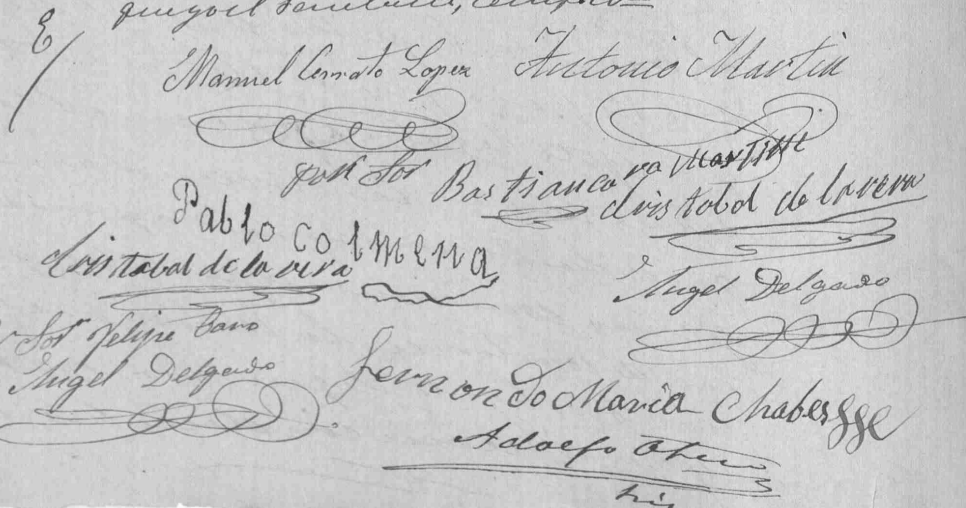 Manuel Cerrato Lopez
Antonio Martin
por Sor Bastiana Martin
Cristobal de la vera
Pablo Colmena
Cristobal de la vera
Angel Delgado
Sor Felipe Cano
Angel Delgado
Fernondo Maria Chabes
Adolfo